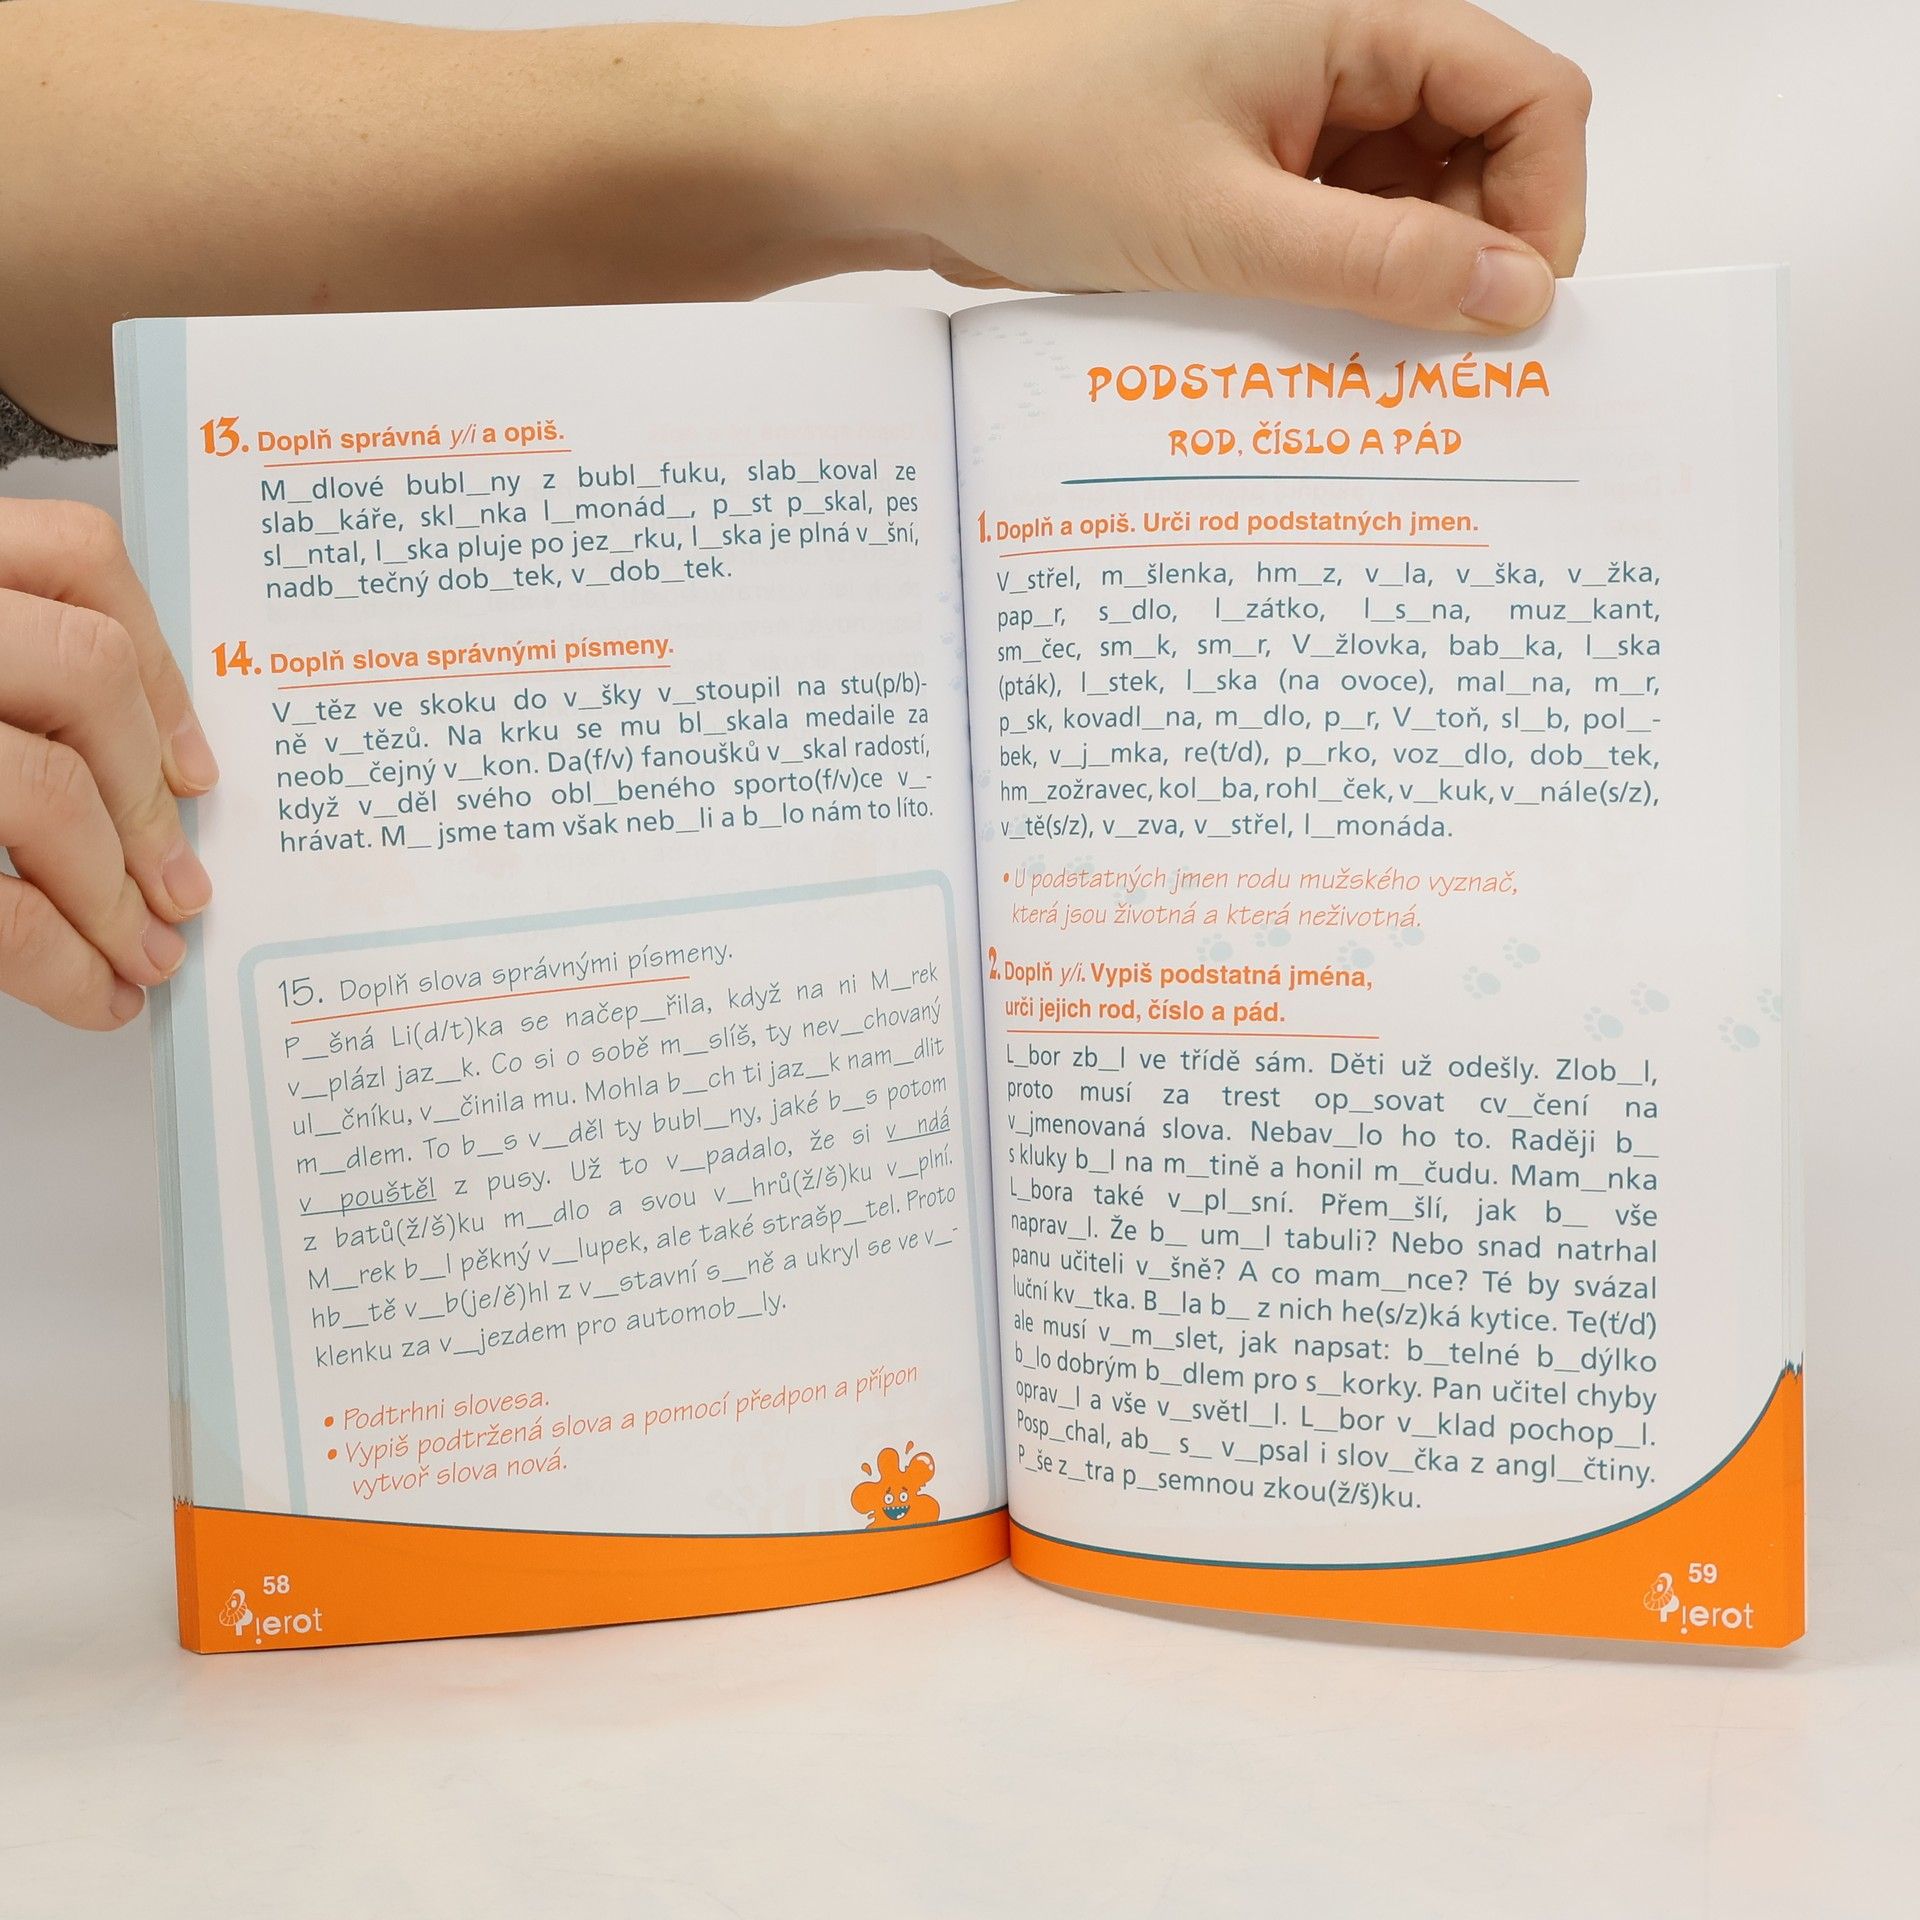 13. Doplň správná y/i a opiš.
M__dlové bubl__ny z bubl__fuku, slab__koval ze
slab__káře, skl__nka l__monád__, p__st p__skal, pes
sl__ntal, l__ska pluje po jez__rku, l__ska je plná v__šní,
nadb__tečný dob__tek, v__dob__tek.
14. Doplň slova správnými písmeny.
V__těz ve skoku do v__šky v__stoupil na stu(p/b)-
ně v__tězů. Na krku se mu bl__skala medaile za
neob__čejný v__kon. Da(f/v) fanoušků v__skal radostí,
když v__děl svého obl__beného sporto(f/v)ce v__-
hrávat. M__ jsme tam však neb__li a b__lo nám to líto.
15. Doplň slova správnými písmeny.
P__šná Li(d/t)ka se načep__řila, když na ni M__rek
v__plázl jaz__k. Co si o sobě m__slíš, ty nev__chovaný
ul__čníku, v__činila mu. Mohla b__ch ti jaz__k nam__dlit
m__dlem. To b__s v__děl ty bubl__ny, jaké b__s potom
v__pouštěl z pusy. Už to v__padalo, že si v__ndá
z batů(ž/š)ku m__dlo a svou v__hrů(ž/š)ku v__plní.
M__rek b__l pěkný v__lupek, ale také strašp__tel. Proto
hb__tě v__b(je/ě)hl z v__stavní s__ně a ukryl se ve v__-
klenku za v__jezdem pro automob__ly.
• Podtrhni slovesa.
• Vypiš podtržená slova a pomocí předpon a přípon
vytvoř slova nová.
58
Pierot
PODSTATNÁ JMÉNA
ROD, ČÍSLO A PÁD
1. Doplň a opiš. Urči rod podstatných jmen.
V__střel, m__šlenka, hm__z, v__la, v__ška, v__žka,
pap__r, s__dlo, l__zátko, l__s__na, muz__kant,
sm__čec, sm__k, sm__r, V__žlovka, bab__ka, l__ska
(pták), l__stek, l__ska (na ovoce), mal__na, m__r,
p__sk, kovadl__na, m__dlo, p__r, V__toň, sl__b, pol__-
bek, v__j__mka, re(t/d), p__rko, voz__dlo, dob__tek,
hm__zožravec, kol__ba, rohl__ček, v__kuk, v__nále(s/z),
v__tě(s/z), v__zva, v__střel, l__monáda.
• U podstatných jmen rodu mužského vyznač,
která jsou životná a která neživotná.
2. Doplň y/i. Vypiš podstatná jména,
urči jejich rod, číslo a pád.
L__bor zb__l ve třídě sám. Děti už odešly. Zlob__l,
proto musí za trest op__sovat cv__čení na
v__jmenovaná slova. Nebav__lo ho to. Raději b__
s kluky b__l na m__tině a honil m__čudu. Mam__nka
L__bora také v__pl__sní. Přem__šlí, jak b__ vše
naprav__l. Že b__ um__l tabuli? Nebo snad natrhal
panu učiteli v__šně? A co mam__nce? Té by svázal
luční kv__tka. B__la b__ z nich he(s/z)ká kytice. Te(ť/ď)
ale musí v__m__slet, jak napsat: b__telné b__dýlko
b__lo dobrým b__dlem pro s__korky. Pan učitel chyby
oprav__l a vše v__světl__l. L__bor v__klad pochop__l.
Posp__chal, ab__ s__ v__psal i slov__čka z angl__čtiny.
P__še z__tra p__semnou zkou(ž/š)ku.
59
Pierot